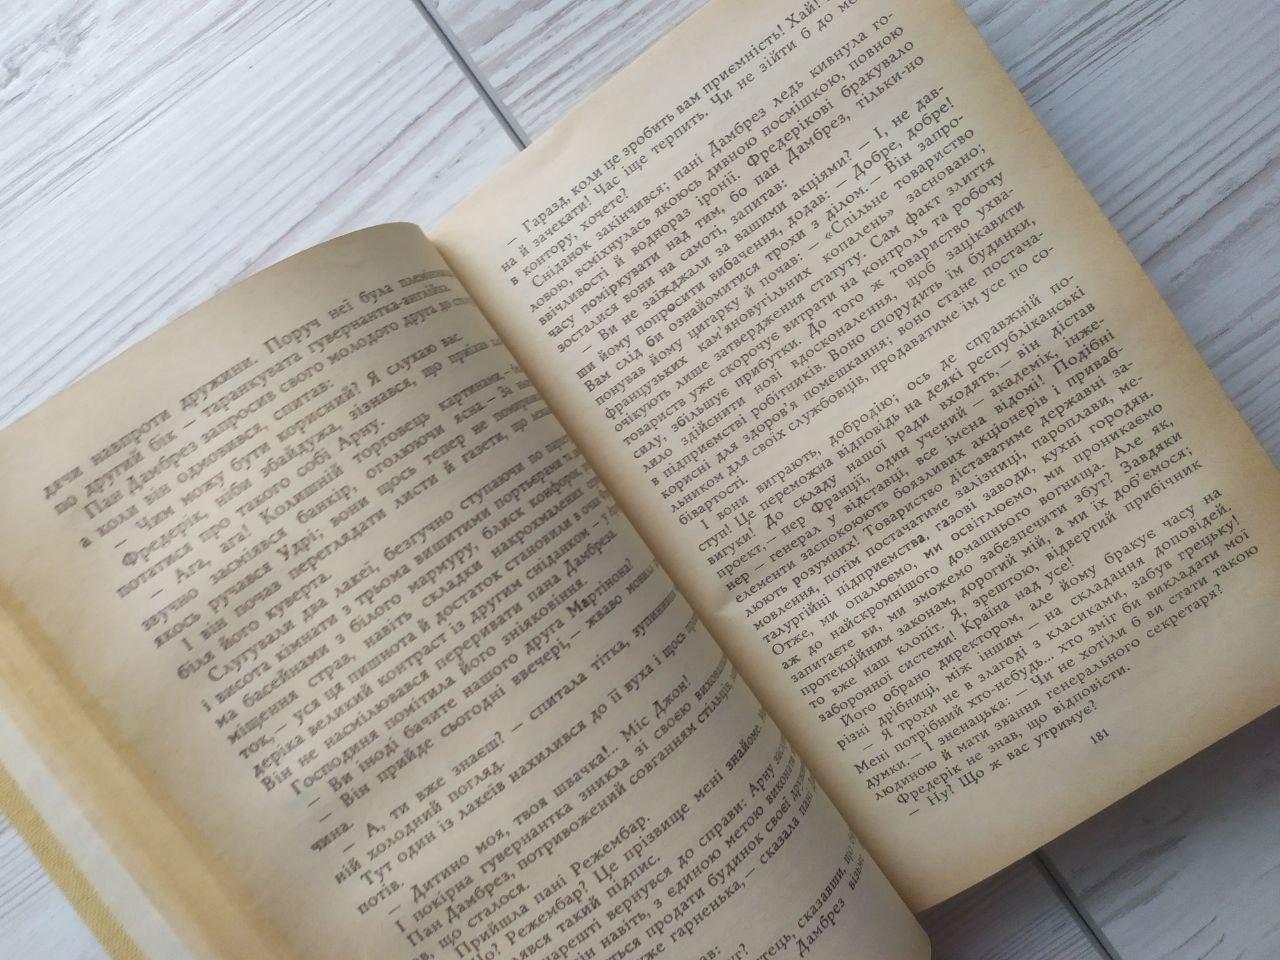 дячи навпроти дружини. Поруч неї була
по другий бік — таранкувата гувернантка-англійка.
Пан Дамбрез запросив свого молодого друга до
а коли він одмовився, спитав:
— Чим можу бути корисний? Я слухаю вас.
Фредерік, ніби збайдужа, зізнався, що приїхав
потатися про такого собі Арну.
— Ага, ага! Колишній торговець картинами,
звучно засміявся банкір, оголюючи ясна.—
якось ручався Удрі; вони щось тепер не
І він почав переглядати листи й газети, що
біля його куверта.
Слугували два лакеї, безгучно ступаючи по
і висота кімнати з трьома вишитими портьєрами
ма басейнами з білого мармуру, блиск
міщення страв, навіть складки накрохмалених
ток,— уся ця пишнота й достаток становили в
деріка великий контраст із другим сніданком
Він не насмілювався перебивати пана
Господиня помітила його зніяковіння.
— Ви іноді бачите нашого друга Мартінона?
— Він прийде сьогодні ввечері,— жваво
чина.
— А, ти вже знаєш? — спитала тітка,
ній холодний погляд.
Тут один із лакеїв нахилився до її вуха і щось
потів.
— Дитино моя, твоя швачка!.. Міс Джон!
І покірна гувернантка зникла зі своєю
Пан Дамбрез, потривожений совганням стільців,
що сталося.
— Прийшла пані Режембар.
Режембар? Це прізвище мені знайоме.
такий підпис.
нарешті вернувся до справи: Арну
він навіть, з єдиною метою
продати будинок своєї
гарненька,— сказала пані
сказавши, що
Дамбрез
— Гаразд, коли це зробить вам приємність! Хай!
на й зачекати! Час іще терпить. Чи не зійти б до
в контору, хочете?
Сніданок закінчився; пані Дамбрез ледь кивнула го-
ловою, всміхнулась якоюсь дивною посмішкою, повною
ввічливості й воднораз іронії. Фредерікові бракувало
часу поміркувати над тим, бо пан Дамбрез, тільки-но
зосталися вони на самоті, запитав:
— Ви не заїжджали за вашими акціями? — І, не дав-
ши йому попросити вибачення, додав: — Добре, добре!
Вам слід би ознайомитися трохи з ділом.— Він запро-
понував йому цигарку й почав: — «Спільне товариство
французьких кам’яновугільних копалень» засновано;
очікують лише затвердження статуту. Сам факт злиття
товариств уже скорочує витрати на контроль та робочу
силу, збільшує прибутки. До того ж товариство ухва-
лило здійснити нові вдосконалення, щоб зацікавити
в підприємстві робітників. Воно спорудить їм будинки,
корисні для здоров’я помешкання; воно стане постача-
льником для своїх службовців, продаватиме їм усе по со-
бівартості.
І вони виграють, добродію; ось де справжній по-
ступ! Це переможна відповідь на деякі республіканські
вигуки! До складу нашої ради входять,— він дістав
проект,— пер Франції, один учений — академік, інже-
нер — генерал у відставці, все імена відомі! Подібні
елементи заспокоюють боязливих акціонерів і приваб-
люють розумних! Товариство діставатиме державні за-
мовлення, потім постачатиме залізниці, пароплави, ме-
талургійні підприємства, газові заводи, кухні городян.
Отже, ми опалюємо, ми освітлюємо, ми проникаємо
аж до найскромнішого домашнього вогнища. Але як,
запитаєте ви, ми зможемо забезпечити збут? Завдяки
протекційним законам, дорогий мій, а ми їх доб’ємося;
то вже наш клопіт! Я, зрештою, відвертий прибічник
заборонної системи! Країна над усе!
Його обрано директором, але йому бракує часу на
різні дрібниці, між іншим — на складання доповідей.
— Я трохи не в злагоді з класиками, забув грецьку!
Мені потрібний хто-небудь... хто зміг би викладати мої
думки.— І зненацька: — Чи не хотіли б ви стати такою
людиною й мати звання генерального секретаря?
Фредерік не знав, що відповісти.
— Ну? Що ж вас утримує?
181